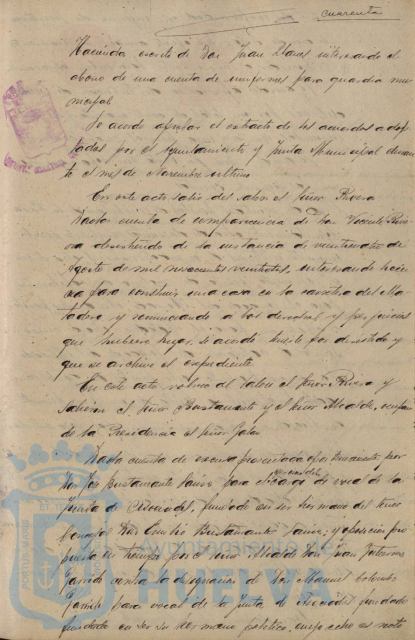 cuarenta
Hacienda escrito de Don Juan Llanes interesando el
abono de una cuenta de uniformes para guardia mu
nicipal
Se acordó aprobar el extracto de los acuerdos adop
tados por el Ayuntamiento y Junta Municipal duran
te el mes de Noviembre último
En este acto salió del salon el Señor Rivera
Dada cuenta de comparecencia de Don Vicente Rive
ra desistiendo de la instancia de veinticuatro de
Agosto de mil novecientos veintitres, interesando licen
cia para construir una casa en la carretera del Ma
tadero y renunciando a los derechos y perjuicios
que hubiere lugar, se acordó tenerle por desistido y
que se archive el expediente.
En este acto volvió al salon el Señor Rivera y
salieron el Señor Bustamante y el Señor Alcalde, ocupan
do la Presidencia el Señor
Dada cuenta de excusa presentada oportunamente por
Don José Bustamante para vocal de la
Junta de fundado en ser hermano del Señor
Concejal Don Emilio Bustamante y oposición pro
por el Señor Alcalde Don Juan
Garrido contra la designación de Don Manuel
Garrido para vocal de la Junta de fundado
fundado en ser su hermano político, cuyo hecho es noto
Ayuntamiento de
HUELVA